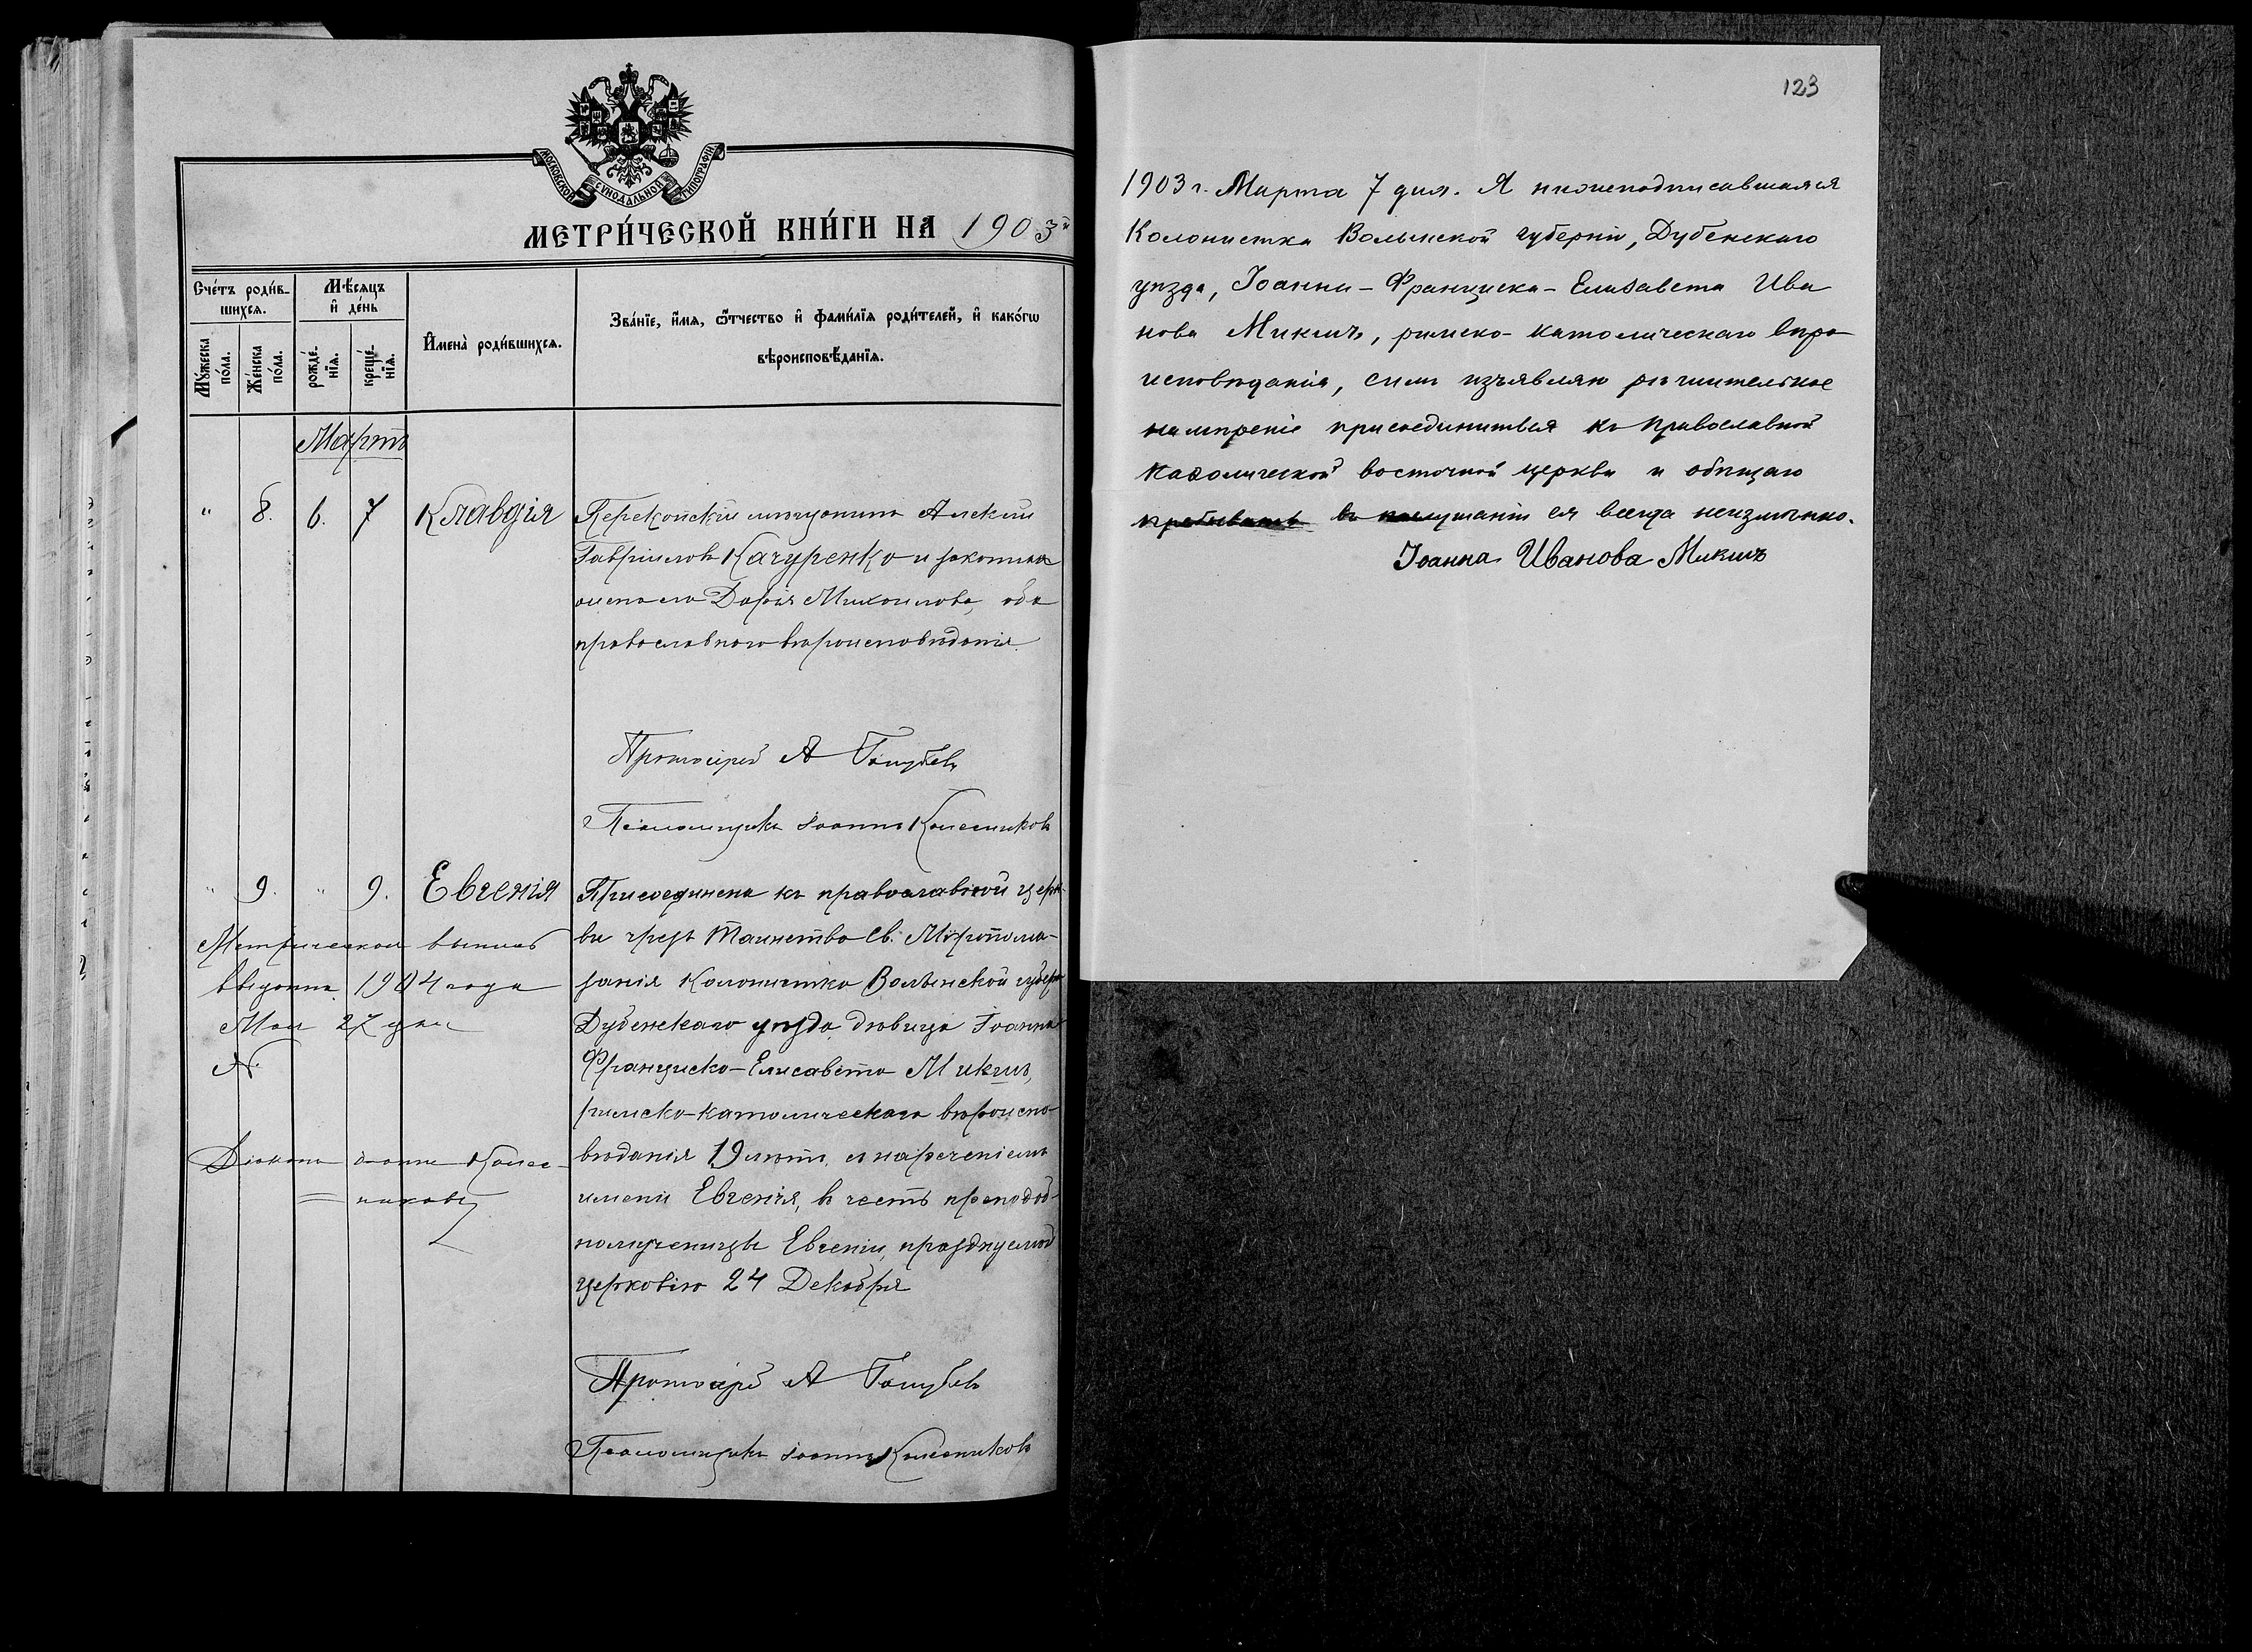 МОСКОВСКОЙ СУНОДАЛЬНОЙ ТИПОГРАФІИ
МЕТРИ́ЧЕСКОЙ КНИ́ГИ НА 1903й
Сче́тъ роди́в-
шихся.
Мѣ́сяцъ
и҆ де́нь
Му́жеска
по́ла.
Же́нска
по́ла.
рожде́-
нїя.
креще́-
нїя.
И҆мена̀ роди́вшихся.
Зва́нїе, и҆́мя, ѻ҆́тчество и҆ фами́лїя роди́телей, и҆ како́гѡ
вѣроисповѣ́данїя.
Мартъ
" 8. 6. 7 Клавдія
Перекопскій мѣщанинъ Алексій
Гавріиловъ Качуренко и законная
жена его Дарія Михаилова, оба
православнаго вѣроисповѣданія.
Протоіерей А Голубевъ
Псаломщикъ Іоаннъ Колесниковъ
" 9. " 9. Евгенія
Присоединена къ православной церк-
ви чрезъ Таинство Св. Мѵропома-
занія колонистка Волынской губерн
Дубенскаго уѣзда, дѣвица Іоанна
Франциска-Елисавета Микшъ,
римско-католическаго вѣроиспо-
вѣданія 19 лѣтъ, съ нареченіемъ
имени Евгенія, въ честь преподоб-
номученицы Евгеніи, празднуемой
церковію 24 Декабря
Метрическая выпись
выдана 1904 года
Мая 27 дня
№
Діаконъ Іоаннъ Колес-
никовъ
Протоіерей А Голубевъ
Псаломщикъ Іоаннъ Колесниковъ
123
1903 г. Марта 7 дня. Я нижеподписавшаяся
Колонистка Волынской губерніи, Дубенскаго
уѣзда, Іоанна-Франциска-Елизавета Ива
нова Микшъ, римско-католическаго вѣро
исповѣданія, симъ изъявляю рѣшительное
намѣреніе присоединиться къ Православной
Каѳолической восточной церкви и обѣщаю
пребывать въ послушаніи ея всегда неизмѣнно.
Іоанна Иванова Микшъ